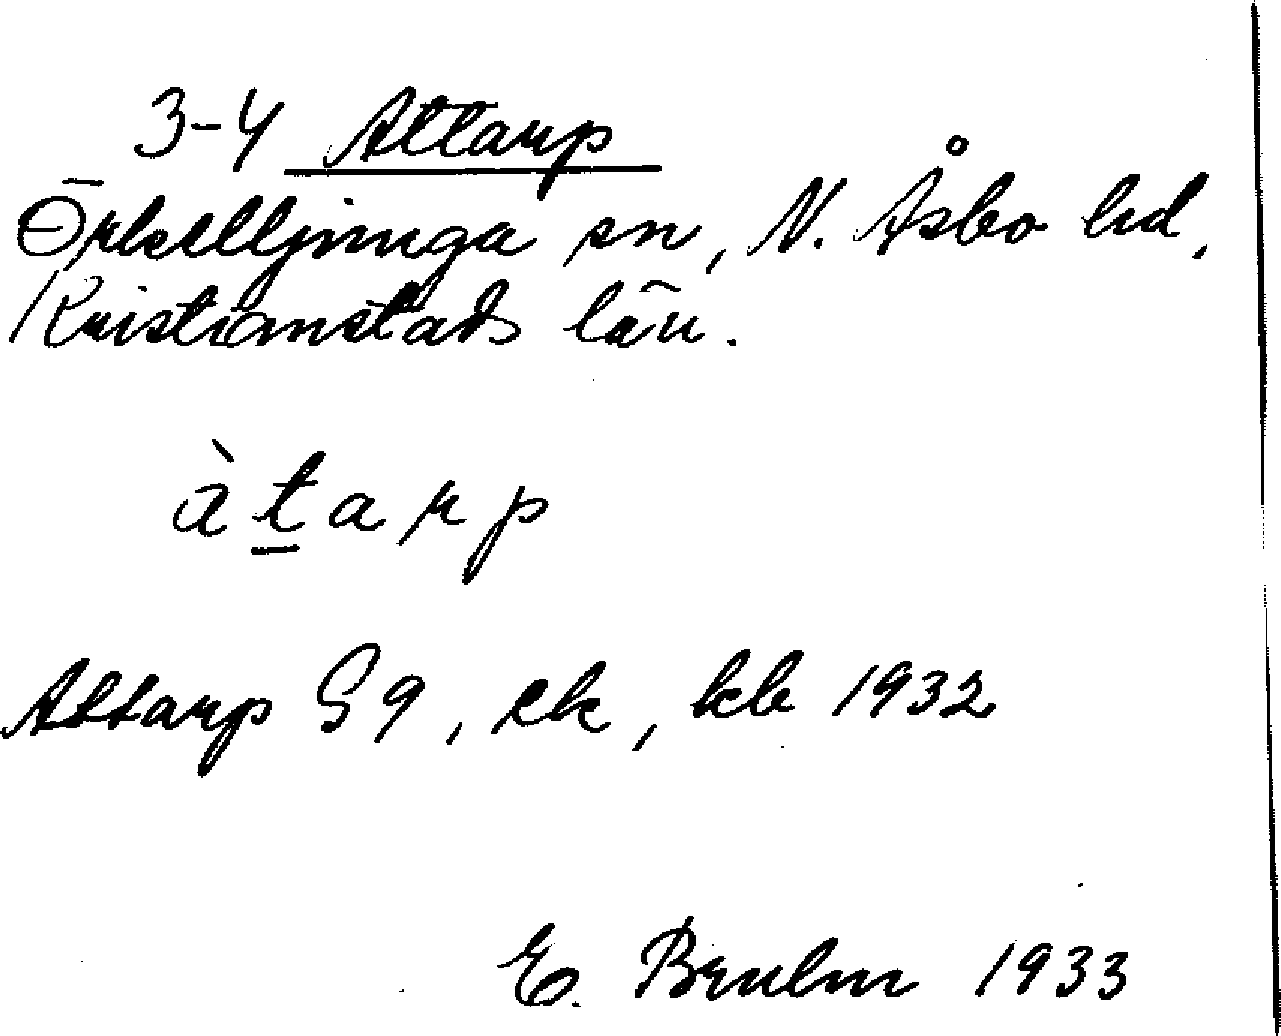 3-4 Attarp
Örkelljunga sn, N. Åsbo hd,
Kristianstads län.
àt̲arp
Attarp G9, ek, kb 1932
E. 1933